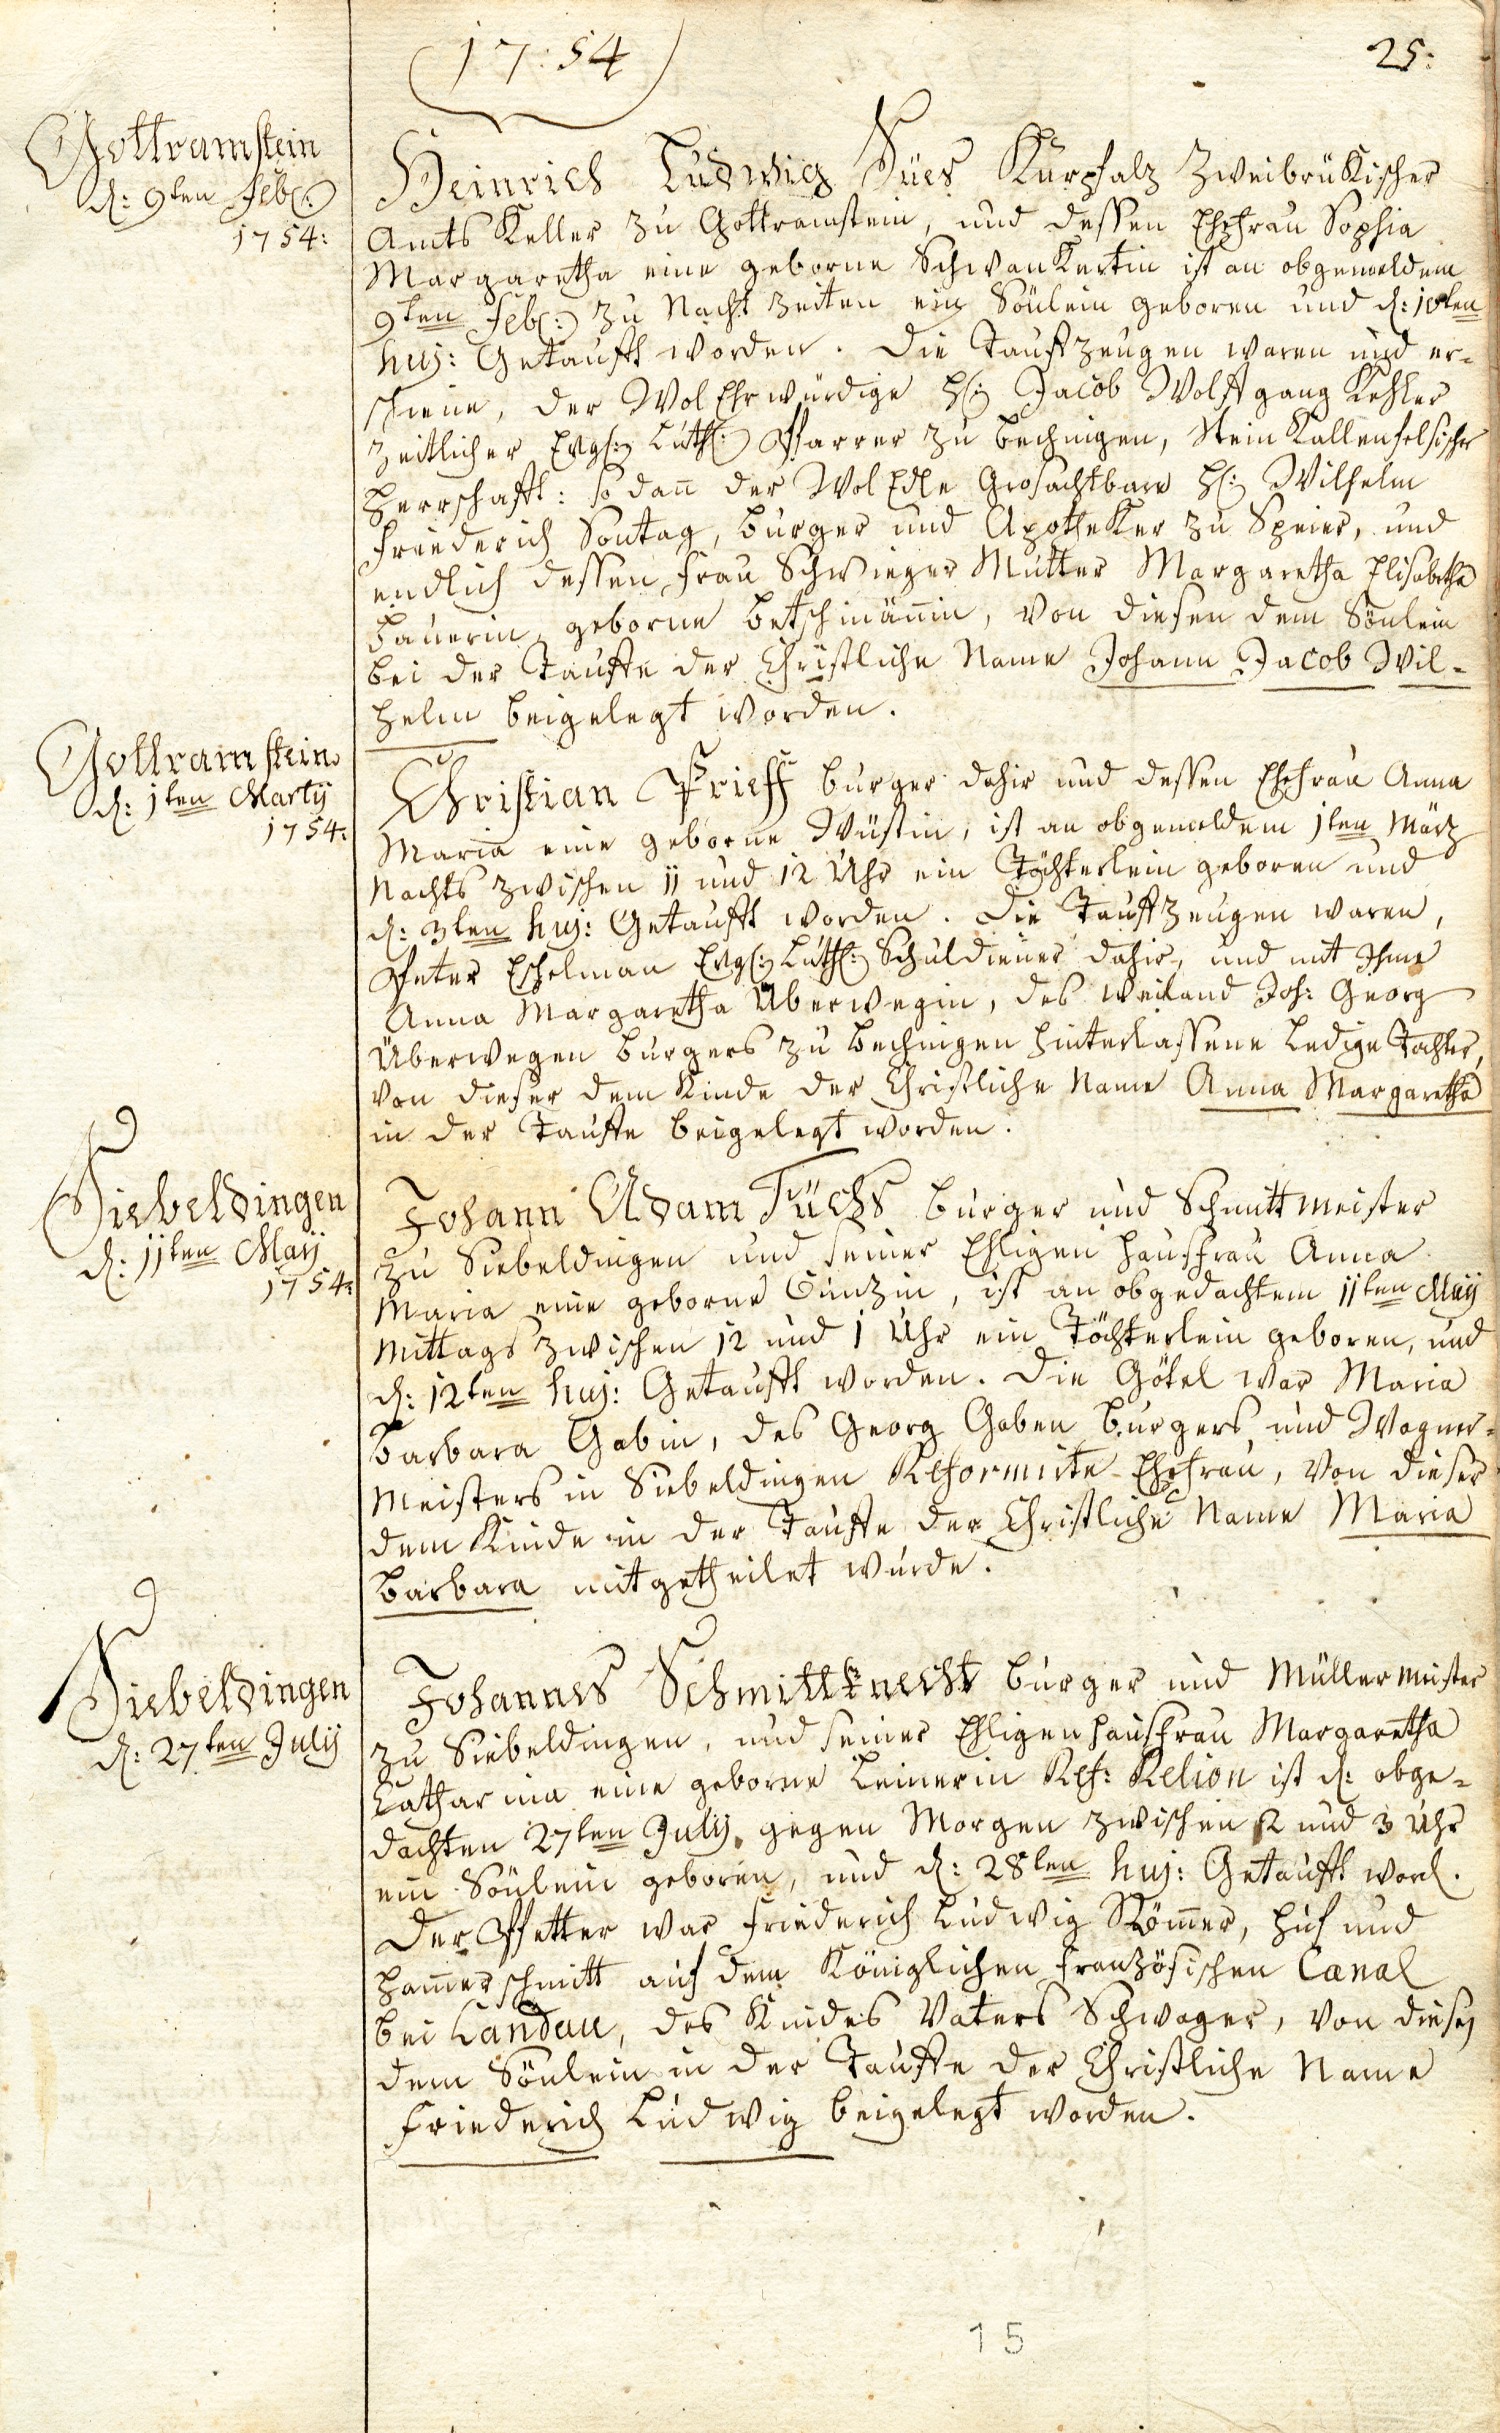 17:54
25:
Gottramstein
d: 9ten Febr:
1754:
Heinrich Ludwig Sües Kurpfalz Zweibrükischer
Amts Keller zu Gottramstein, und dessen Ehefrau Sophia
Margaretha eine geborne Schwankertin ist an obgemeldem
9ten Febr: zu Nacht zeiten ein Sönlein geboren und d: 10ten
huj: Getaufft worden. Die Taufzeugen waren und er-
schiene, der WolEhrwürdige H: Jacob Wolffgang Kehler
zeitlicher Evgl: Luth: Pfarrer zu Bechingen, Stein Kallenfelsischer
Herrschafft: so dañ der WolEdle Grosachtbare H: Wilhelm
Friederich Sontag, Burger und Apotheker zu Speier, und
endlich dessen Frau Schwieger Mutter Margaretha Elisabetha
Bauerin, geborne Betschmäñin, von diesen dem Sönlein
bei der Tauffe der Christliche Name Johann Jacob Wil-
helm beigelegt worden.
Gottramstein
d: 1ten Martij
1754:
Christian Prieff Burger dahir und dessen Ehefrau Anna
Maria eine geborne Wüstin, ist an obgemeldem 1ten Märtz
Nachts zwischen 11 und 12 Uhr ein Töchterlein geboren und
d: 3ten huj: Getaufft worden. Die Taufzeugen waren,
Peter Eschelman Evgl: Luth: Schuldiener dahir, und mit Ihme
Anna Margaretha Überwegin, des weiland Joh: Georg
Überwegen Burgers zu Bechingen hinterlassene Ledige Tochter,
von dieser dem Kinde der Christliche Name Anna Margaretha
in der Tauffe beigelegt worden.
Siebeldingen
d: 11ten Maij
1754:
Johann Adam Füchs Burger und Schmitt meister
zu Siebeldingen und seiner Ehligen Hausfrau Anna
Maria eine geborne Cunzin, ist an obgedachtem 11ten Maij
Mittags zwischen 12 und 1 Uhr ein Töchterlein geboren, und
d: 12ten huj: Getaufft worden. Die Götel war Maria
Barbara Gabin, des Georg Gaben Burgers und Wagner-
meisters in Siebeldingen Reformirte Ehefrau, von dieser
dem Kinde in der Tauffe der Christliche Name Maria
Barbara mitgetheilet wurde.
Siebeldingen
d: 27ten Julij
Johannes Schmittknecht Burger und Müller meister
zu Siebeldingen, und seiner Ehligen Hausfrau Margaretha
Catharina eine geborne Leinerin Ref: Relion ist d: obge-
dachten 27ten Julij gegen Morgen zwischen 2 und 3 Uhr
ein Sönlein geboren, und d: 28ten huj: Getaufft word.
Der Pfetter war Friederich Ludwig Röm̃er, Huf und
Ham̃erschmitt auf dem Königlichen Französischen Canal
bei Landau, des Kindes Vaters Schwager, von diesem
dem Sönlein in der Tauffe der Christliche Name
Friederich Ludwig beigelegt worden.
15